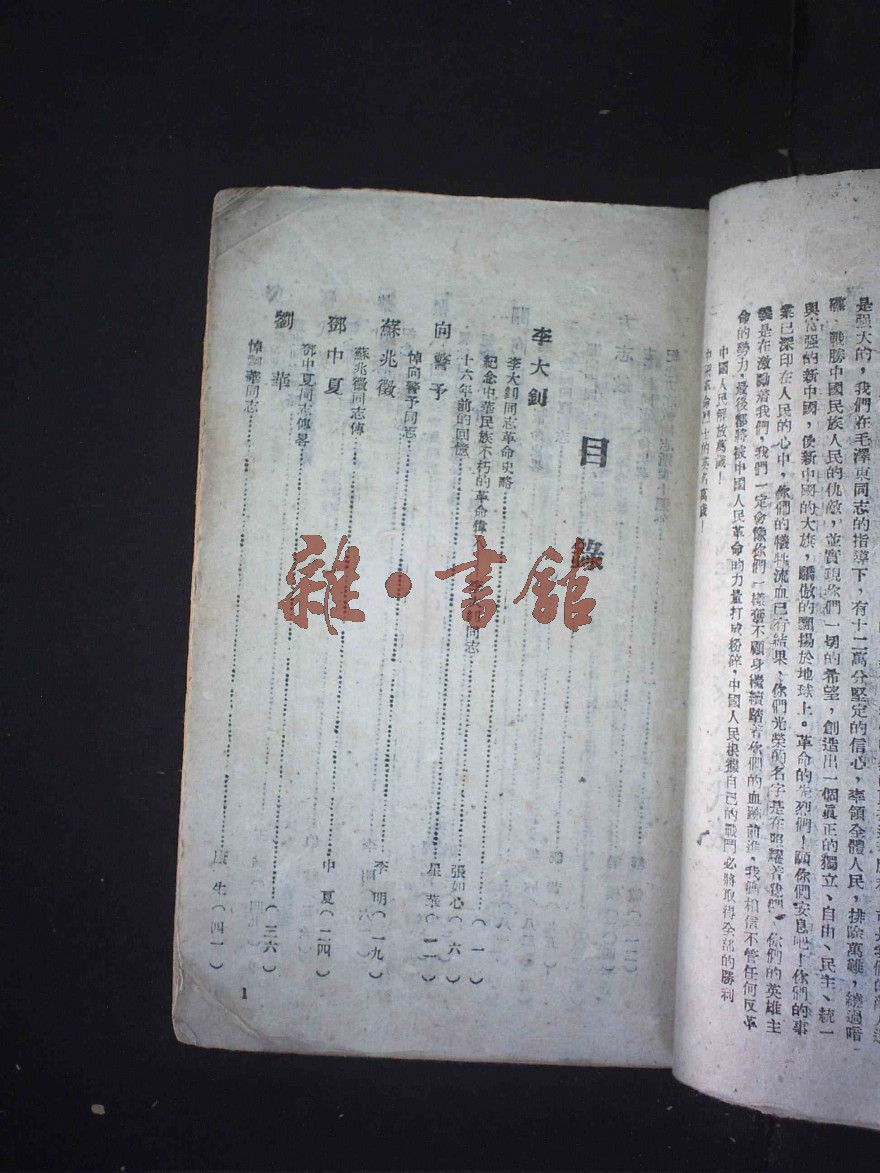 是强大的，我們在毛澤東同志的指導下，有十二萬分堅定的信心，率領全體人民，排除萬難，繞過暗
礁，戰勝中國民族人民的仇敵，並實現你們一切的希望，創造出一個眞正的獨立、自由、民主、統一
與富强的新中國，使新中國的大旗，驕傲的飄揚於地球上。革命的先烈們！願你們安息吧！你們的事
業已深印在人民的心中，你們的犧牲流血已有結果，你們光榮的名字是在照耀着我們，你們的英雄主
義是在激勵着我們，我們一定會像你們一樣奮不顧身繼續踏着你們的血跡前進，我們相信不管任何反革
命的勢力，最後都將被中國人民革命的力量打成粉碎，中國人民根據自己的戰鬥必將取得全部的勝利
中國人民解放萬歲！
中國革命烈士的英名萬歲！
目錄
李大釗
李大釗同志革命史略……（一）
紀念中華民族不朽的革命偉 同志……張如心（六）
十六年前的回憶……星華（一一）
向警予
悼向警予同志……
蘇兆徵
蘇兆徵同志傳……李明（一九）
鄧中夏
鄧中夏同志傳畧……中夏（二四）
……（三六）
劉華
悼劉華同志……康生（四一）
1
雜·書館